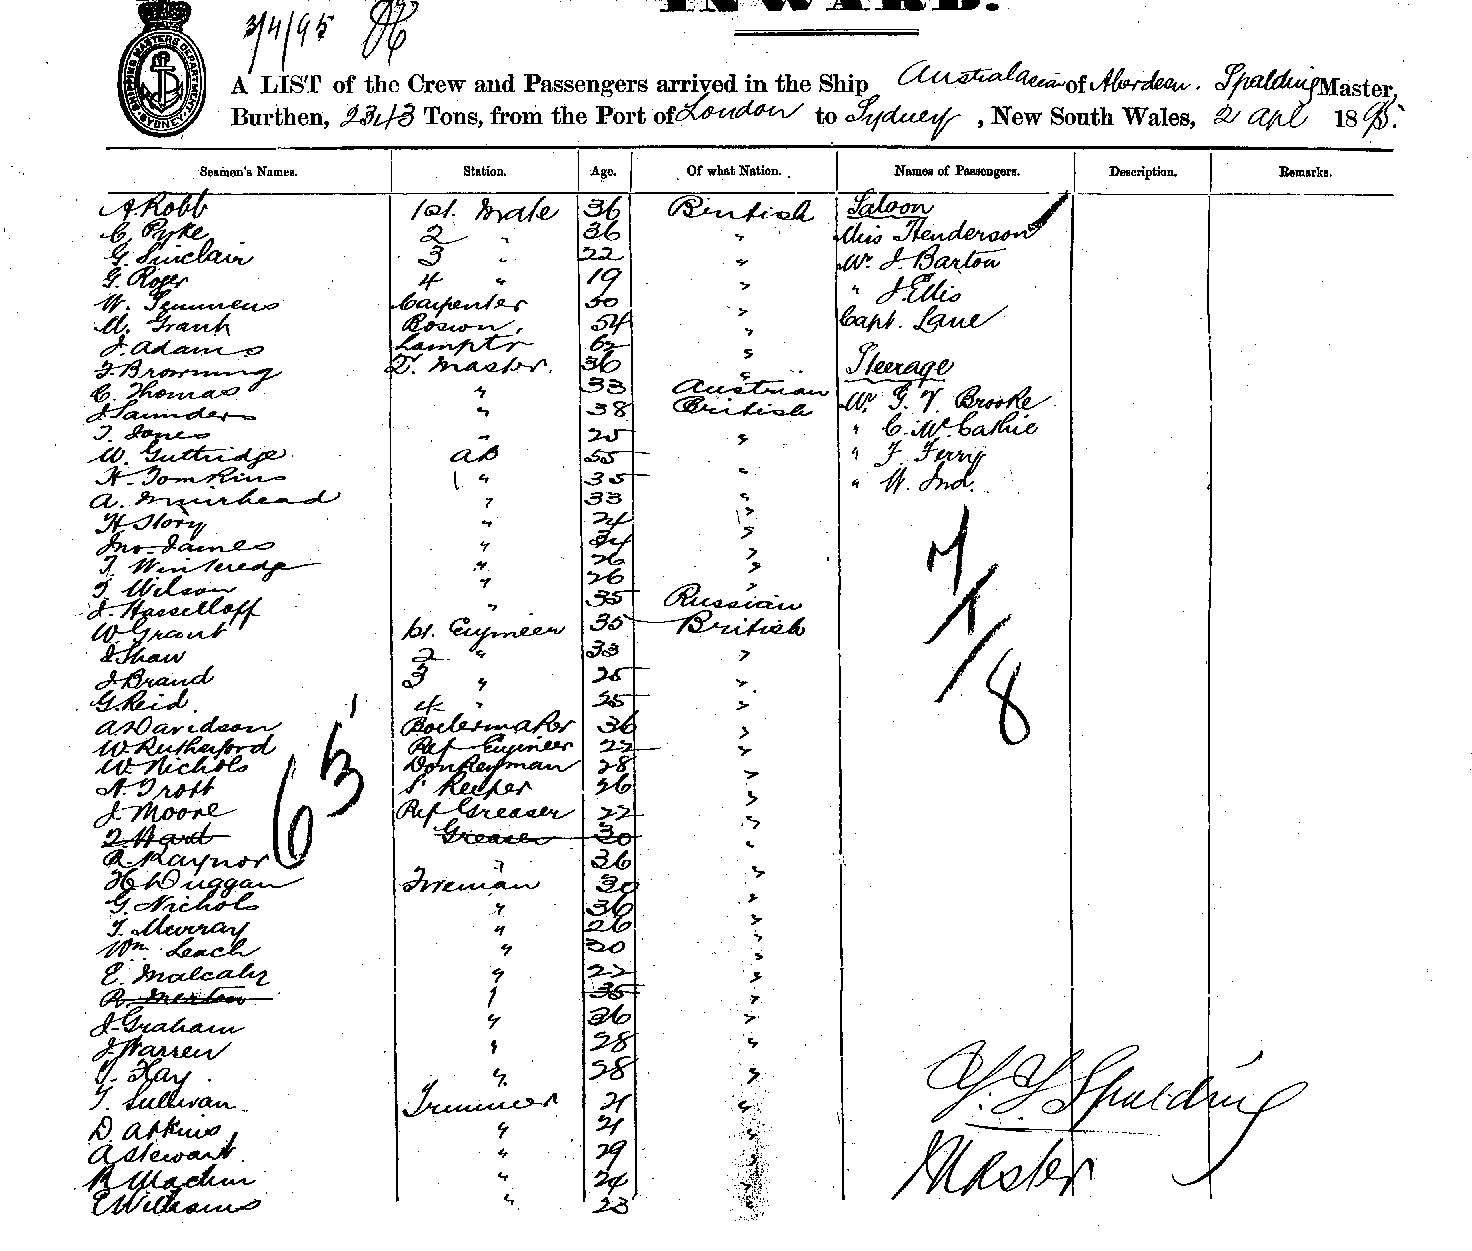 INWARD.
3/4/95
SHIPPING MASTERS DEPARTMENT SYDNEY
A LIST of the Crew and Passengers arrived in the Ship Australasian of Aberdeen. Spalding Master,
Burthen, 2343 Tons, from the Port of London to Sydney, New South Wales, 2 apl 1895.
Seamen's Names. Station. Age. Of what Nation. Names of Passengers. Description. Remarks.
A Robb 1st. Mate 36 British Saloon
C. Pyke 2 " 36 " Miss Henderson
G. Sinclair 3 " 22 " Mr. J. Barton
G. Roger 4 " 19 " " J. Ellis
W. Timmens Carpenter 30 " Capt. Lane
A. Grant Boswn, 54 "
J. Adams Lamptr 62 "
F. Browning Q. Master. 36 " Steerage
C. Thomas " 33 Austrian
J. Saunders " 38 British Mr. G. V. Brooke
T. Jones " 25 " " C. McCathie
W. Guttridge AB 55 " " F. Ferry
H. Tomkins " 35 " " W. Ind.
A. Muirhead " 33 "
H Story " 24 "
Jno James " 34 "
T. Winteredge " 26 "
T. Wilson " 26 "
J. Hasselloff " 35 Russian
W Grant 1st. Engineer 35 British
J Shaw 2 " 33 "
J. Brand 3 " 25 "
G. Reid. 4 " 25 "
A Davidson Boilermaker 36 "
W Rutherford Ref Engineer 22 "
W. Nichols Donkeyman 28 "
A. Trott S. Keeper 26 "
J. Moore Ref Greaser 22 "
T Ward Greaser 30 "
R. Raynor " 36 "
H Duggan Fireman 30 "
G. Nichols " 36 "
T. Murray " 26 "
Wm. Leach " 30 "
E. Malcahy " 22 "
R. Merton " 35 "
J. Graham " 36 "
J. Warren " 28 "
Hay. " 28 "
T. Sullivan. Trimmer 21 "
D. Atkins, " 21 "
A Stewart. " 29 "
R Machin " 24 "
E Williams " 23 "
63
7/1/8
Spalding
Master